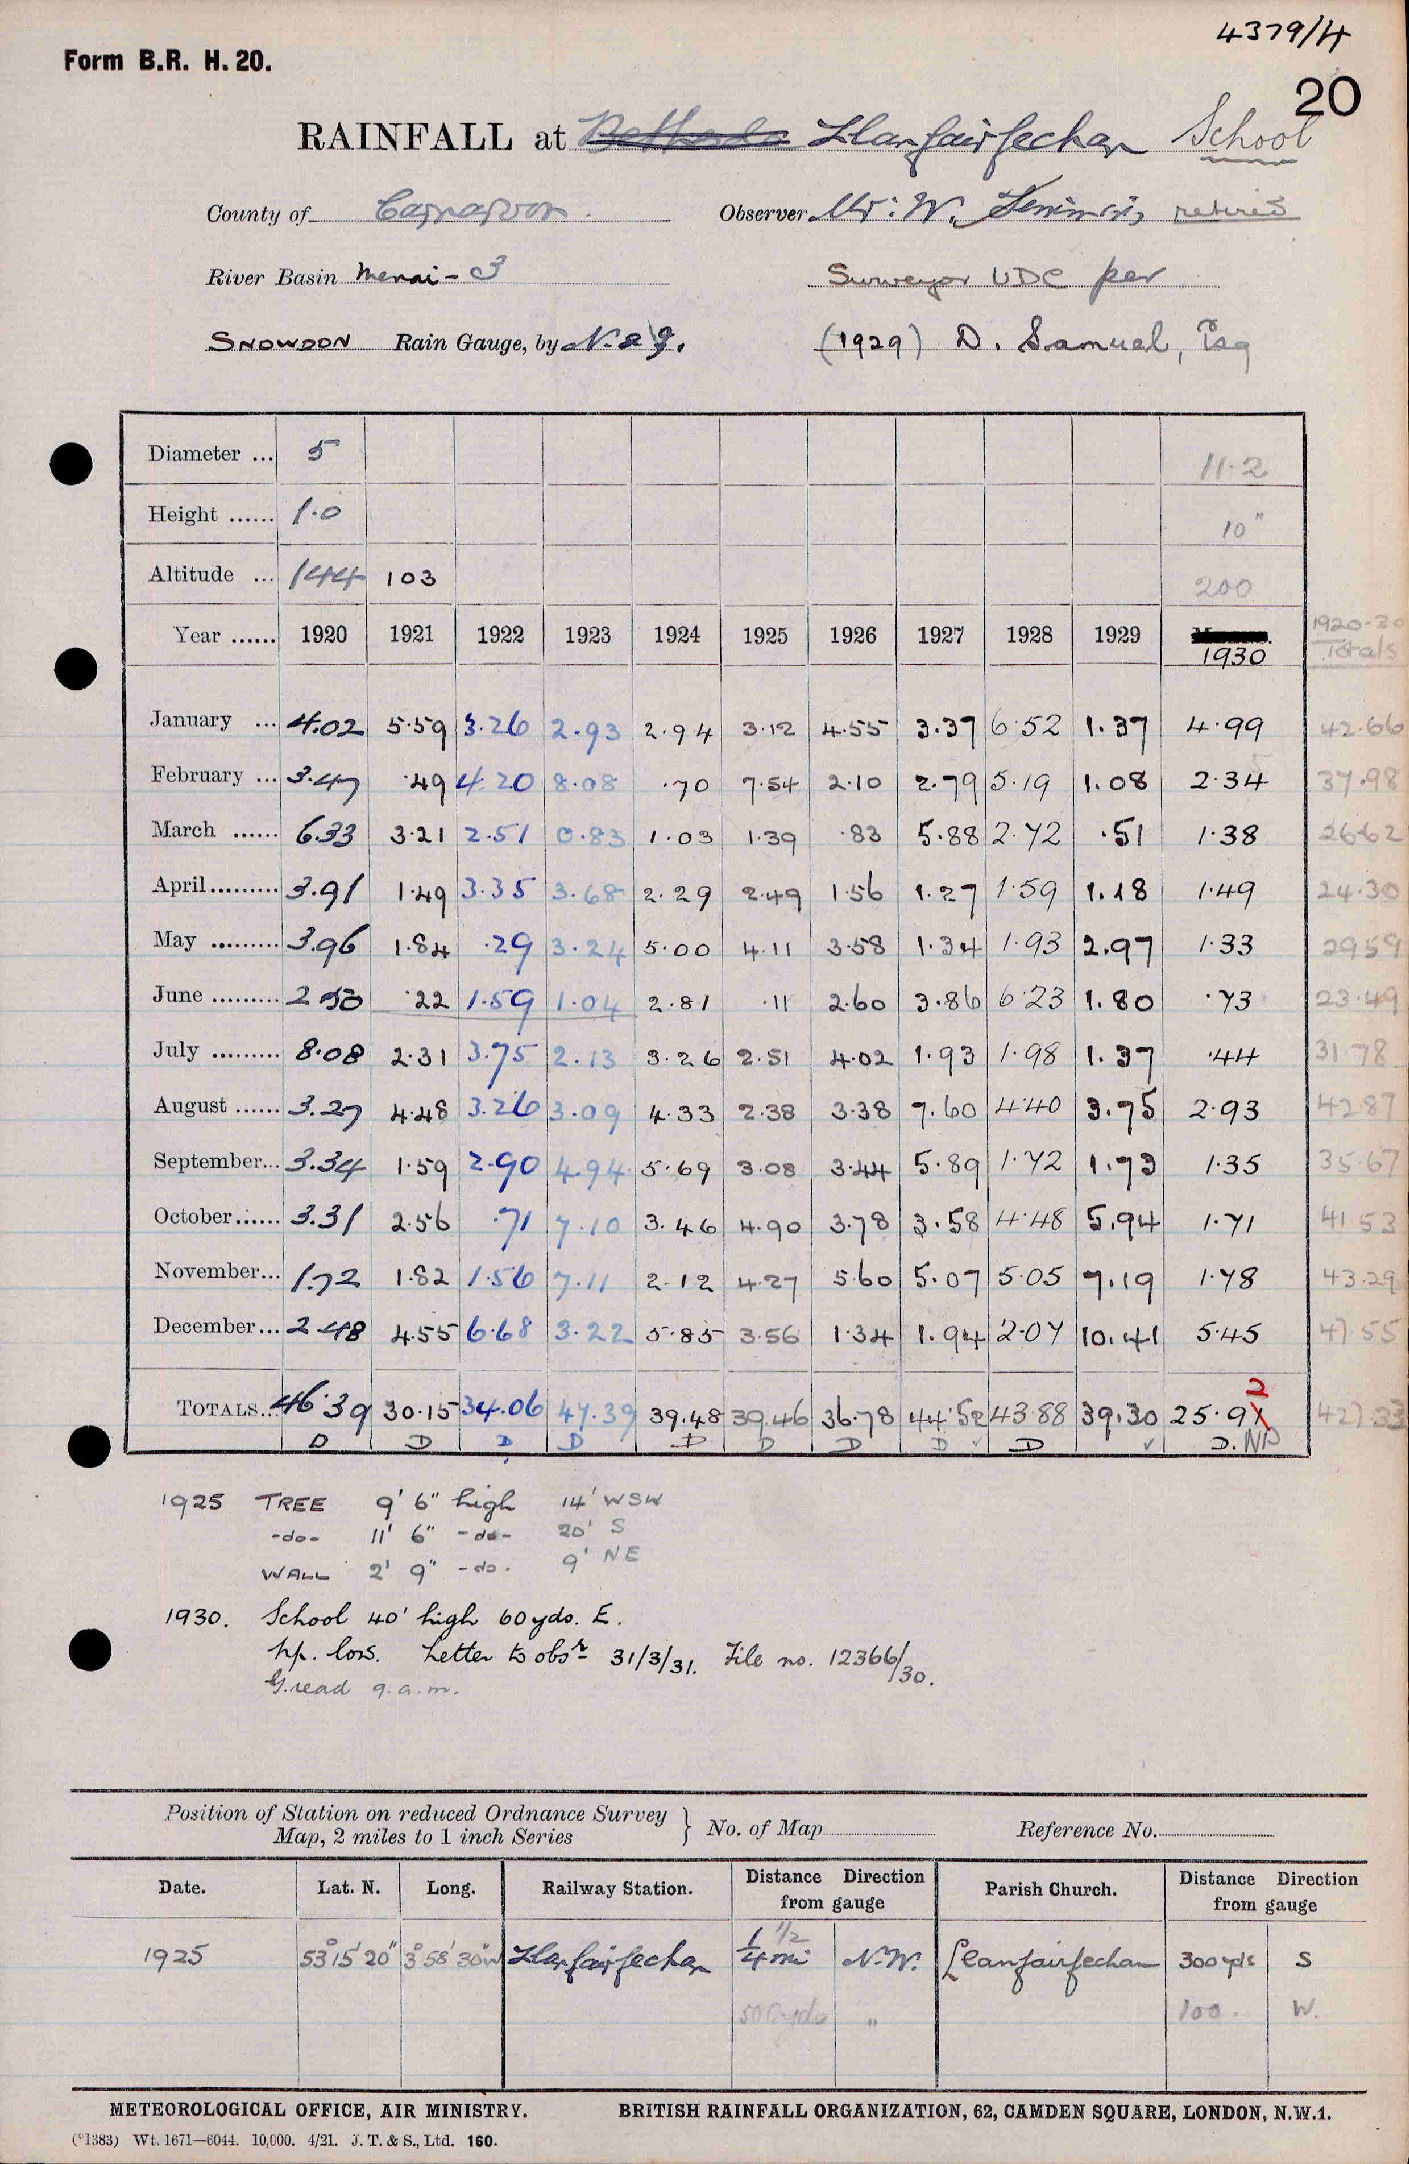 4379/4
Form B.R. H. 20.
20
RAINFALL at Bethesda Llanfairfechan School
County of Carnarvon. Observer Mr: W. retired
River Basin Menai - 3 Surveyor UDC per
SNOWDON Rain Gauge, by N. & Z. (1929) D. Samuel, Esq
Diameter ... 5 11.2
Height ...... 1.0 10"
Altitude ... 144 103 200
Year ...... 1920 1921 1922 1923 1924 1925 1926 1927 1928 1929 1930 1920-30 Totals
January ... 4.02 5.59 3.26 2.93 2.94 3.12 4.55 3.37 6.52 1.37 4.99 42.66
February ... 3.47 .49 4.20 8.08 .70 7.54 2.10 2.79 5.19 1.08 2.34 37.98
March ...... 6.33 3.21 2.51 0.83 1.03 1.39 .83 5.88 2.72 .51 1.38 26.62
April......... 3.91 1.49 3.35 3.68 2.29 2.49 1.56 1.27 1.59 1.18 1.49 24.30
May ......... 3.96 1.84 .29 3.24 5.00 4.11 3.58 1.34 1.93 2.97 1.33 29.59
June ......... 2.50 .22 1.59 1.04 2.81 .11 2.60 3.86 6.23 1.80 .73 23.49
July ......... 8.08 2.31 3.75 2.13 3.26 2.51 4.02 1.93 1.98 1.37 .44 31.78
August ...... 3.27 4.48 3.26 3.09 4.33 2.38 3.38 7.60 4.40 3.75 2.93 42.87
September... 3.34 1.59 2.90 4.94 5.69 3.08 3.44 5.89 1.72 1.73 1.35 35.67
October...... 3.31 2.56 .71 7.10 3.46 4.90 3.78 3.58 4.48 5.94 1.71 41.53
November... 1.72 1.82 1.56 7.11 2.12 4.27 5.60 5.07 5.05 7.19 1.78 43.29
December... 2.48 4.55 6.68 3.22 5.85 3.56 1.34 1.94 2.07 10.41 5.45 47.55
TOTALS... 46.39 30.15 34.06 47.39 39.48 39.46 36.78 44.52 43.88 39.30 25.92 427.33
D D D D D D D D ✓ D ✓ D. ND
1925 TREE 9' 6" high 14' WSW
-do- 11' 6" -do- 20' S
WALL 2' 9" -do. 9' NE
1930. School 40' high 60 yds. E.
hp. low. Letter to obsr 31/3/31. File no. 12366/30.
G. read 9.a.m.
Position of Station on reduced Ordnance Survey Map, 2 miles to 1 inch Series } No. of Map Reference No.
Date. Lat. N. Long. Railway Station. Distance Direction from gauge Parish Church. Distance Direction from gauge
1925 53° 15' 20" 3° 58' 30" W Llanfairfechan 1/4 mi 1/2 N.W. Llanfairfechan 300 yds S
500 yds " 100 . W.
METEOROLOGICAL OFFICE, AIR MINISTRY. BRITISH RAINFALL ORGANIZATION, 62, CAMDEN SQUARE, LONDON, N.W.1.
(*1383) Wt. 1671—6044. 10,000. 4/21. J. T. & S., Ltd. 160.